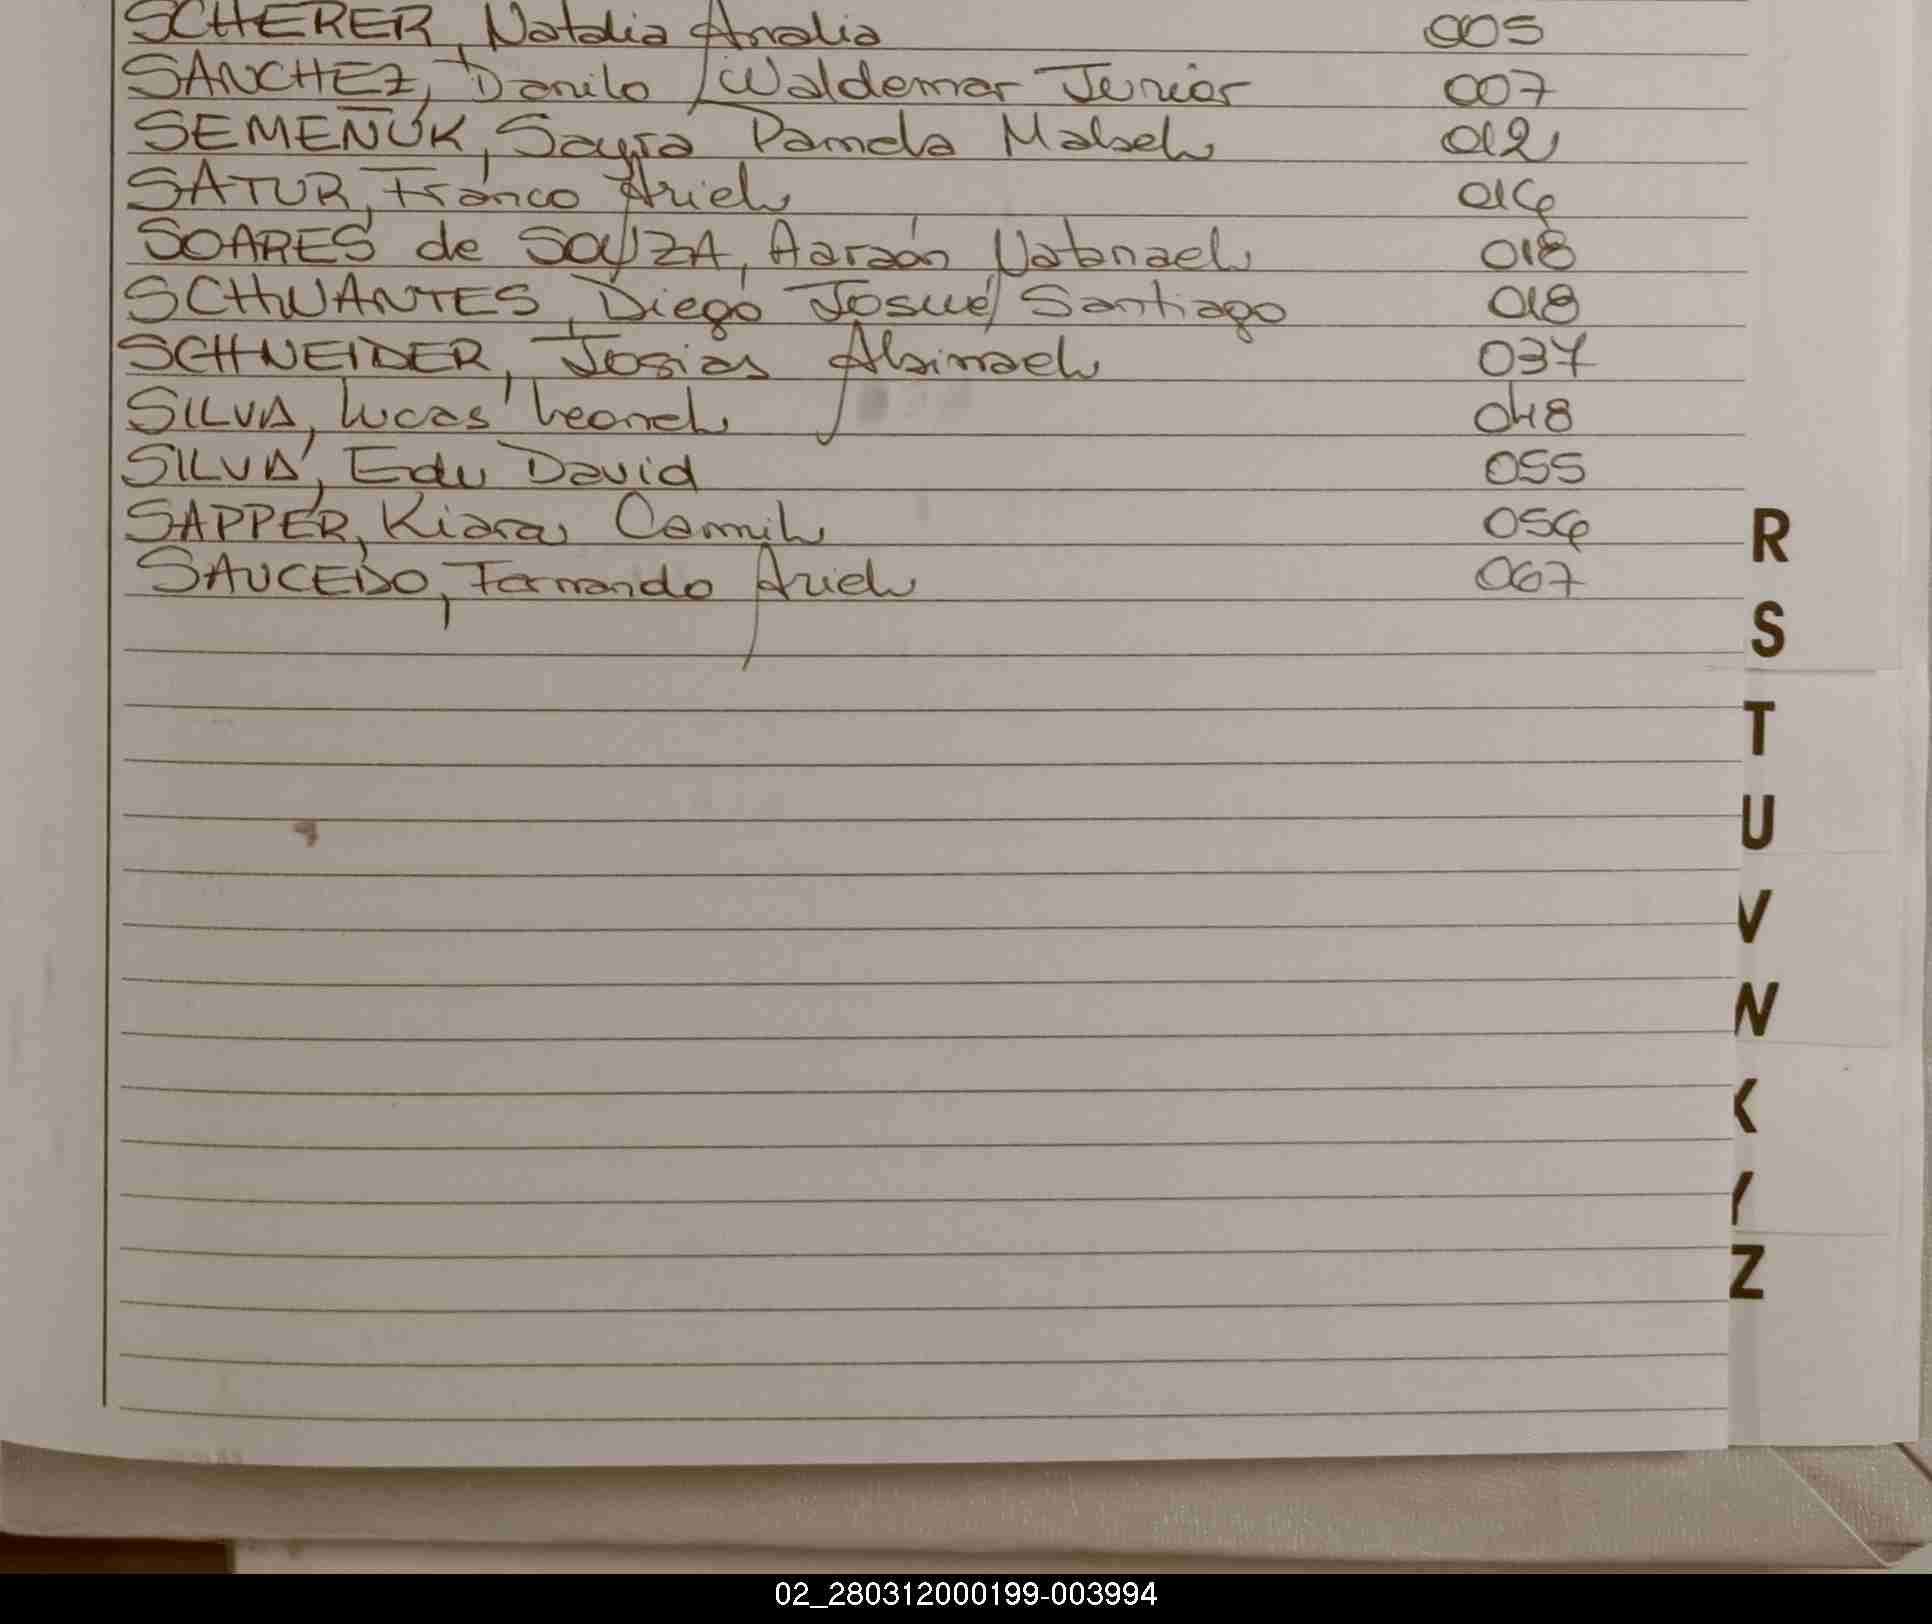 SCHERER, Natalia Analia 005
SANCHEZ, Danilo Waldemar Junior 007
SEMEÑUK, Sayra Pamela Mabel 012
SATUR, Franco Ariel 016
SOARES de SOUZA, Aaraón Natanael 018
SCHWANTES, Diego Josué Santiago 018
SCHNEIDER, Josias Abimael 037
SILVA, Lucas Leonel 048
SILVA, Edu David 055
SAPPER, Kiara Camil 056
SAUCEDO, Fernando Ariel 067
R
S
T
U
V
W
X
Y
Z
02_280312000199-003994